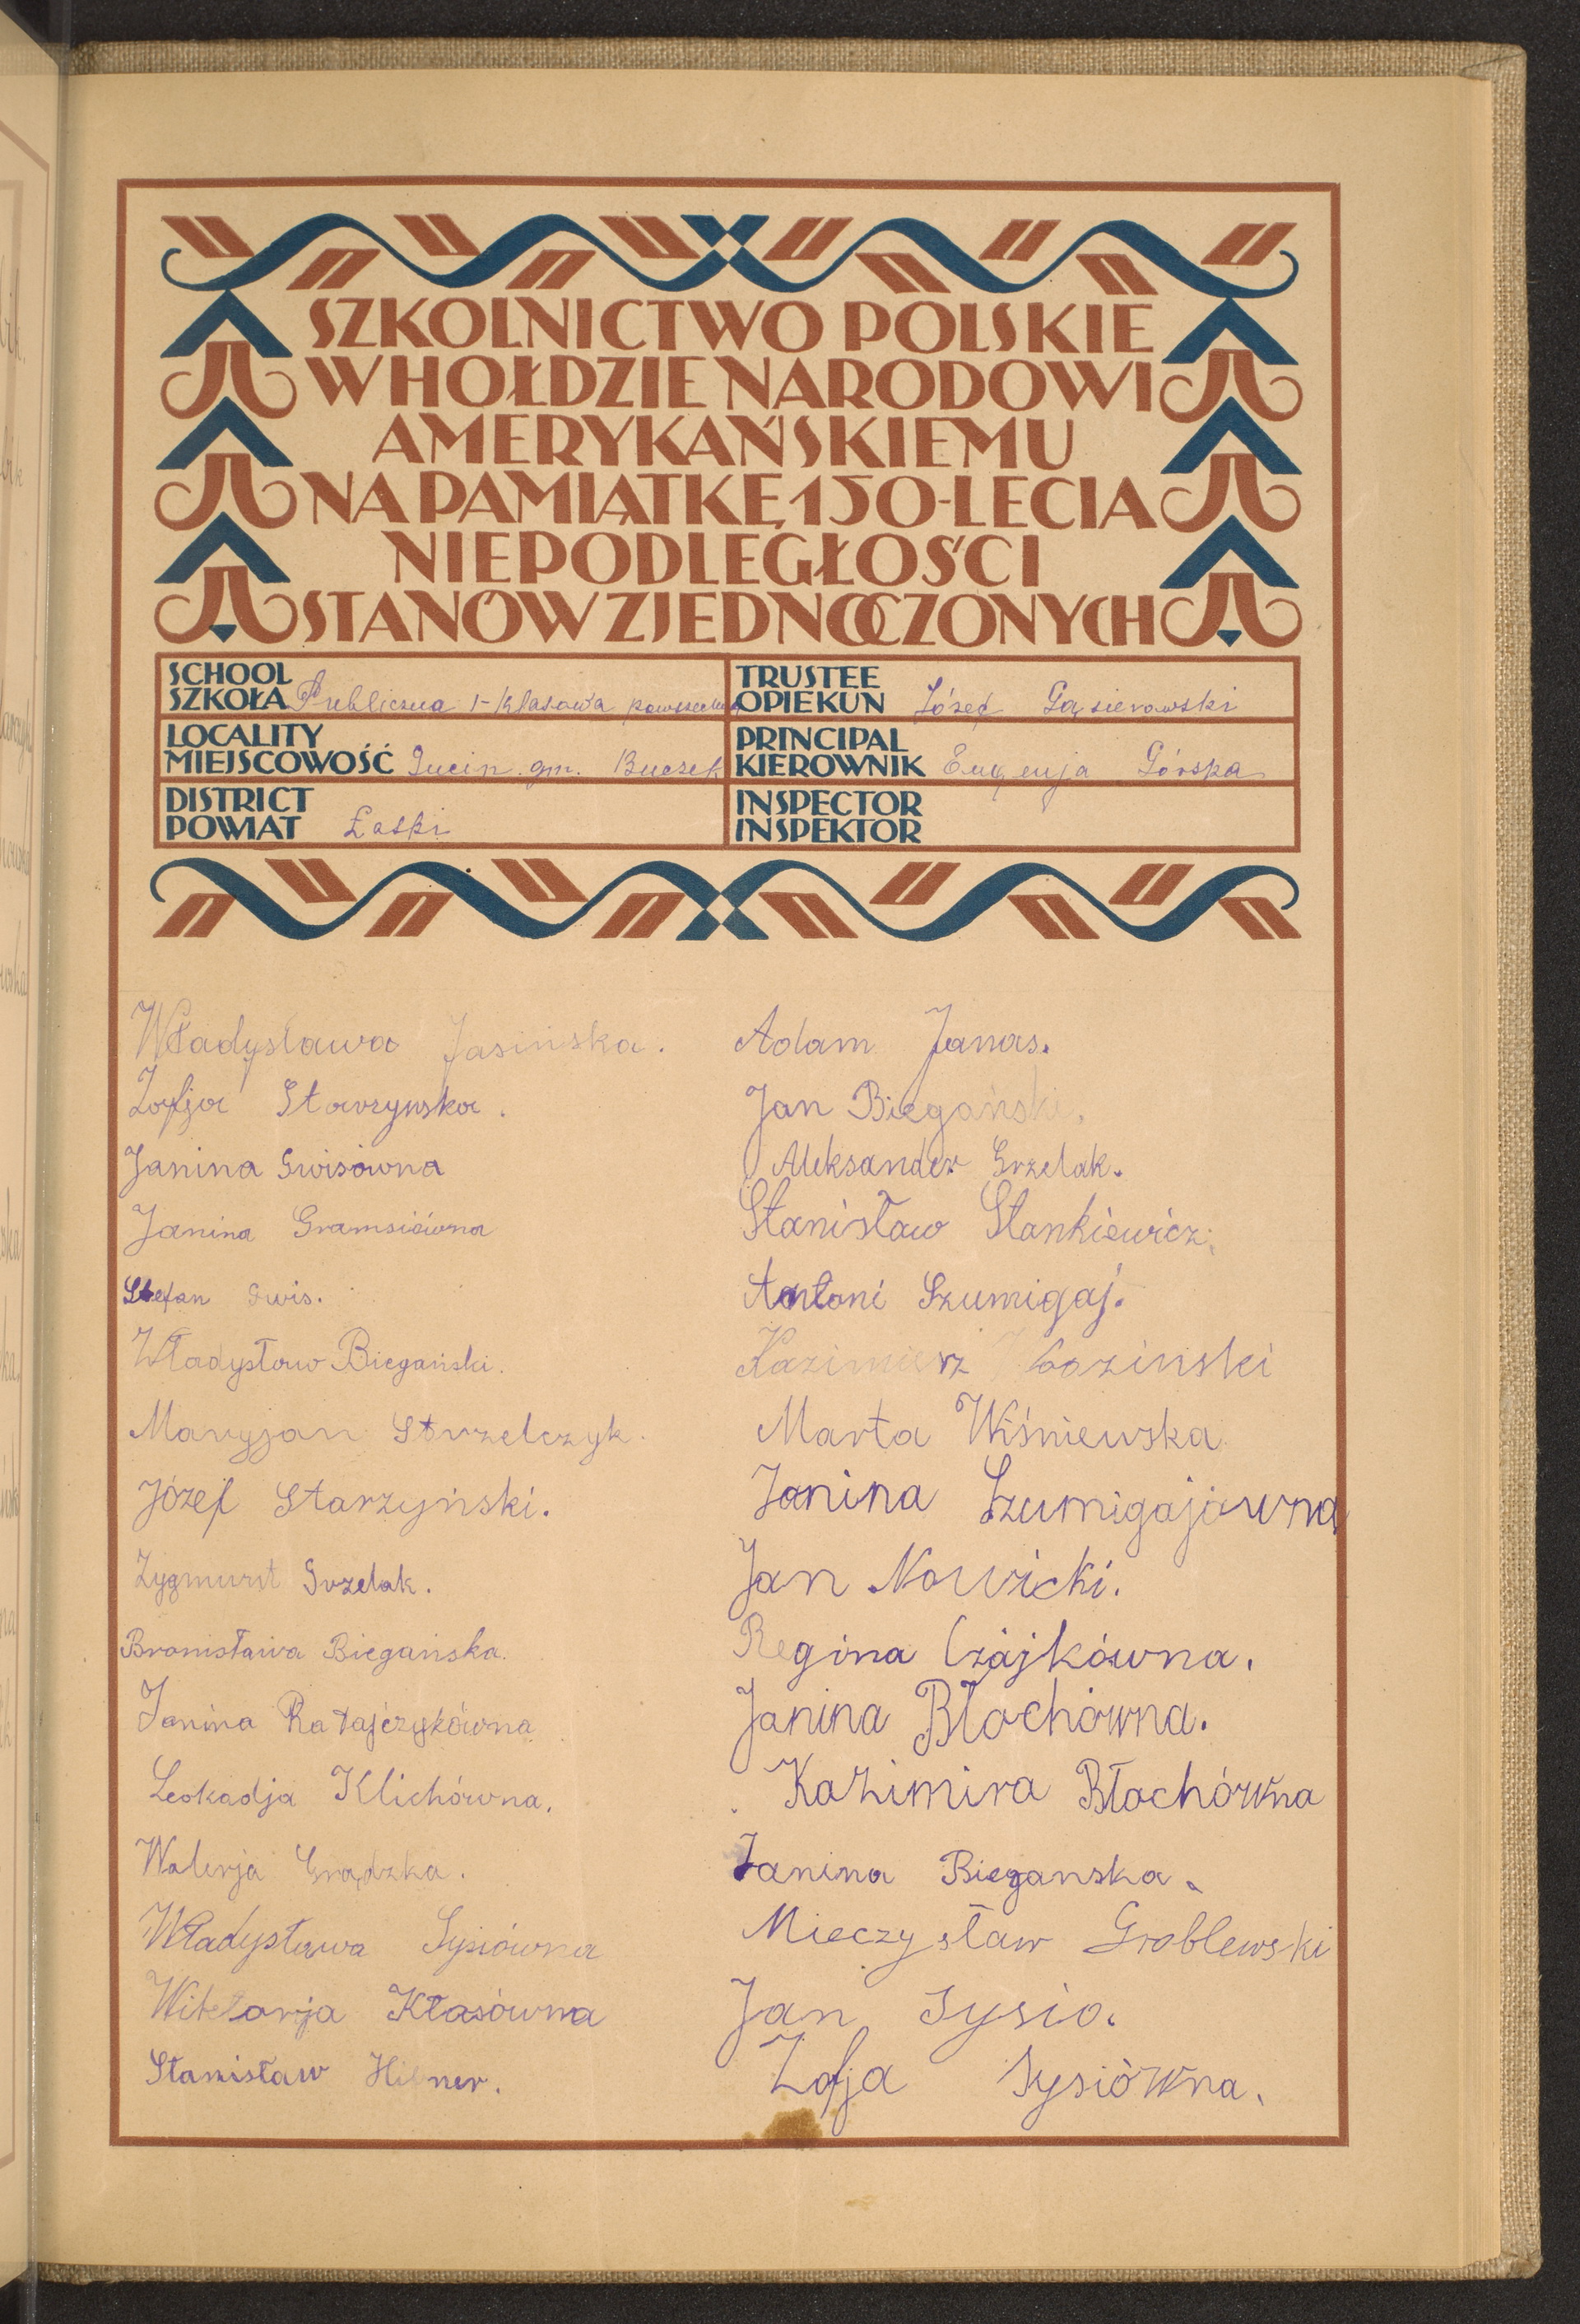 SZKOLNICTWO POLSKIE
W HOŁDZIE NARODOWI
AMERYKAŃSKIEMU
NA PAMIĄTKĘ 150-LECIA
NIEPODLEGŁOŚCI
STANÓW ZJEDNOCZONYCH
SCHOOL
SZKOŁA Publiczna 1-klasowa powszechna
TRUSTEE
OPIEKUN Józef Gąsierowski
LOCALITY
MIEJSCOWOŚĆ gm. Buczek
PRINCIPAL
KIEROWNIK Eugenja Górska
DISTRICT
POWIAT Łaski
INSPECTOR
INSPEKTOR
Władysława Jasińska.
Zofja Starzynska.
Janina Gwisówna
Janina Gramsiówna
Stefan Gwis.
Władysław Biegański.
Maryjan Strzelczyk.
Józef Starzyński.
Zygmunt Grzelak.
Bronisława Biegańska.
Janina Ratajczykówna
Leokadja Klichówna.
Walerja Grądzka.
Władysława Sysiówna
Wiktorja Kłasówna
Stanisław Hilner.
Adam Janas.
Jan Biegański.
Aleksander Grzelak.
Stanisław Stankiewicz.
Antoni Szumigaj.
Kazimierz Łoziński
Marta Wiśniewska
Janina Szumigajówna
Jan Nowicki.
Regina Czajkówna.
Janina Błochówna.
Kazimira Błochówna
Janina Bieganska.
Mieczysław Groblewski
Jan Sysio.
Zofja Sysiówna.